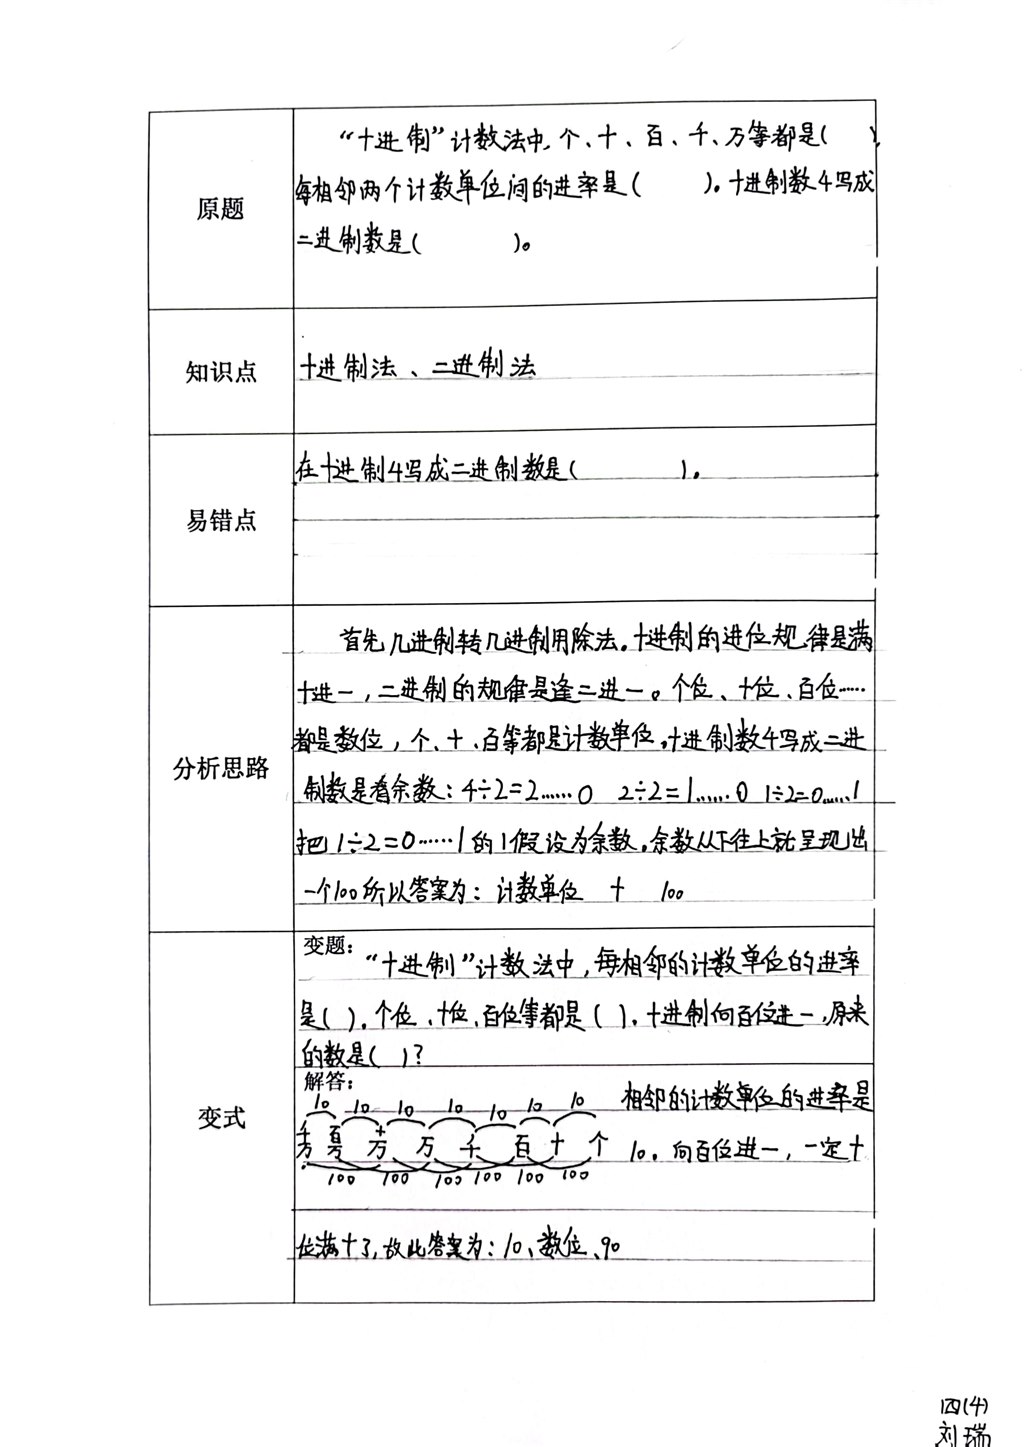 原题
“十进制”计数法中,个、十、百、千、万等都是( ),
每相邻两个计数单位间的进率是( )。十进制数4写成
二进制数是( )。
知识点
十进制法、二进制法
易错点
在十进制4写成二进制数是( ).
分析思路
首先几进制转几进制用除法。十进制的进位规律是满
十进一,二进制的规律是逢二进一。个位、十位、百位……
都是数位,个、十、百等都是计数单位,十进制数4写成二进
制数是看余数:4÷2=2……0 2÷2=1……0 1÷2=0……1
把1÷2=0……1的1假设为余数。余数从下往上就呈现出
一个100所以答案为:计数单位 十 100
变式
变题:
“十进制”计数法中,每相邻的计数单位的进率
是( ).个位、十位、百位等都是( ).十进制向百位进一,原来
的数是( )?
解答:
10 10 10 10 10 10 10
千万 百万 十万 万 千 百 十 个
100 100 100 100 100 100
相邻的计数单位的进率是
10。向百位进一,一定十
位满十了,故此答案为:10、数位、90
四(4)
刘瑞